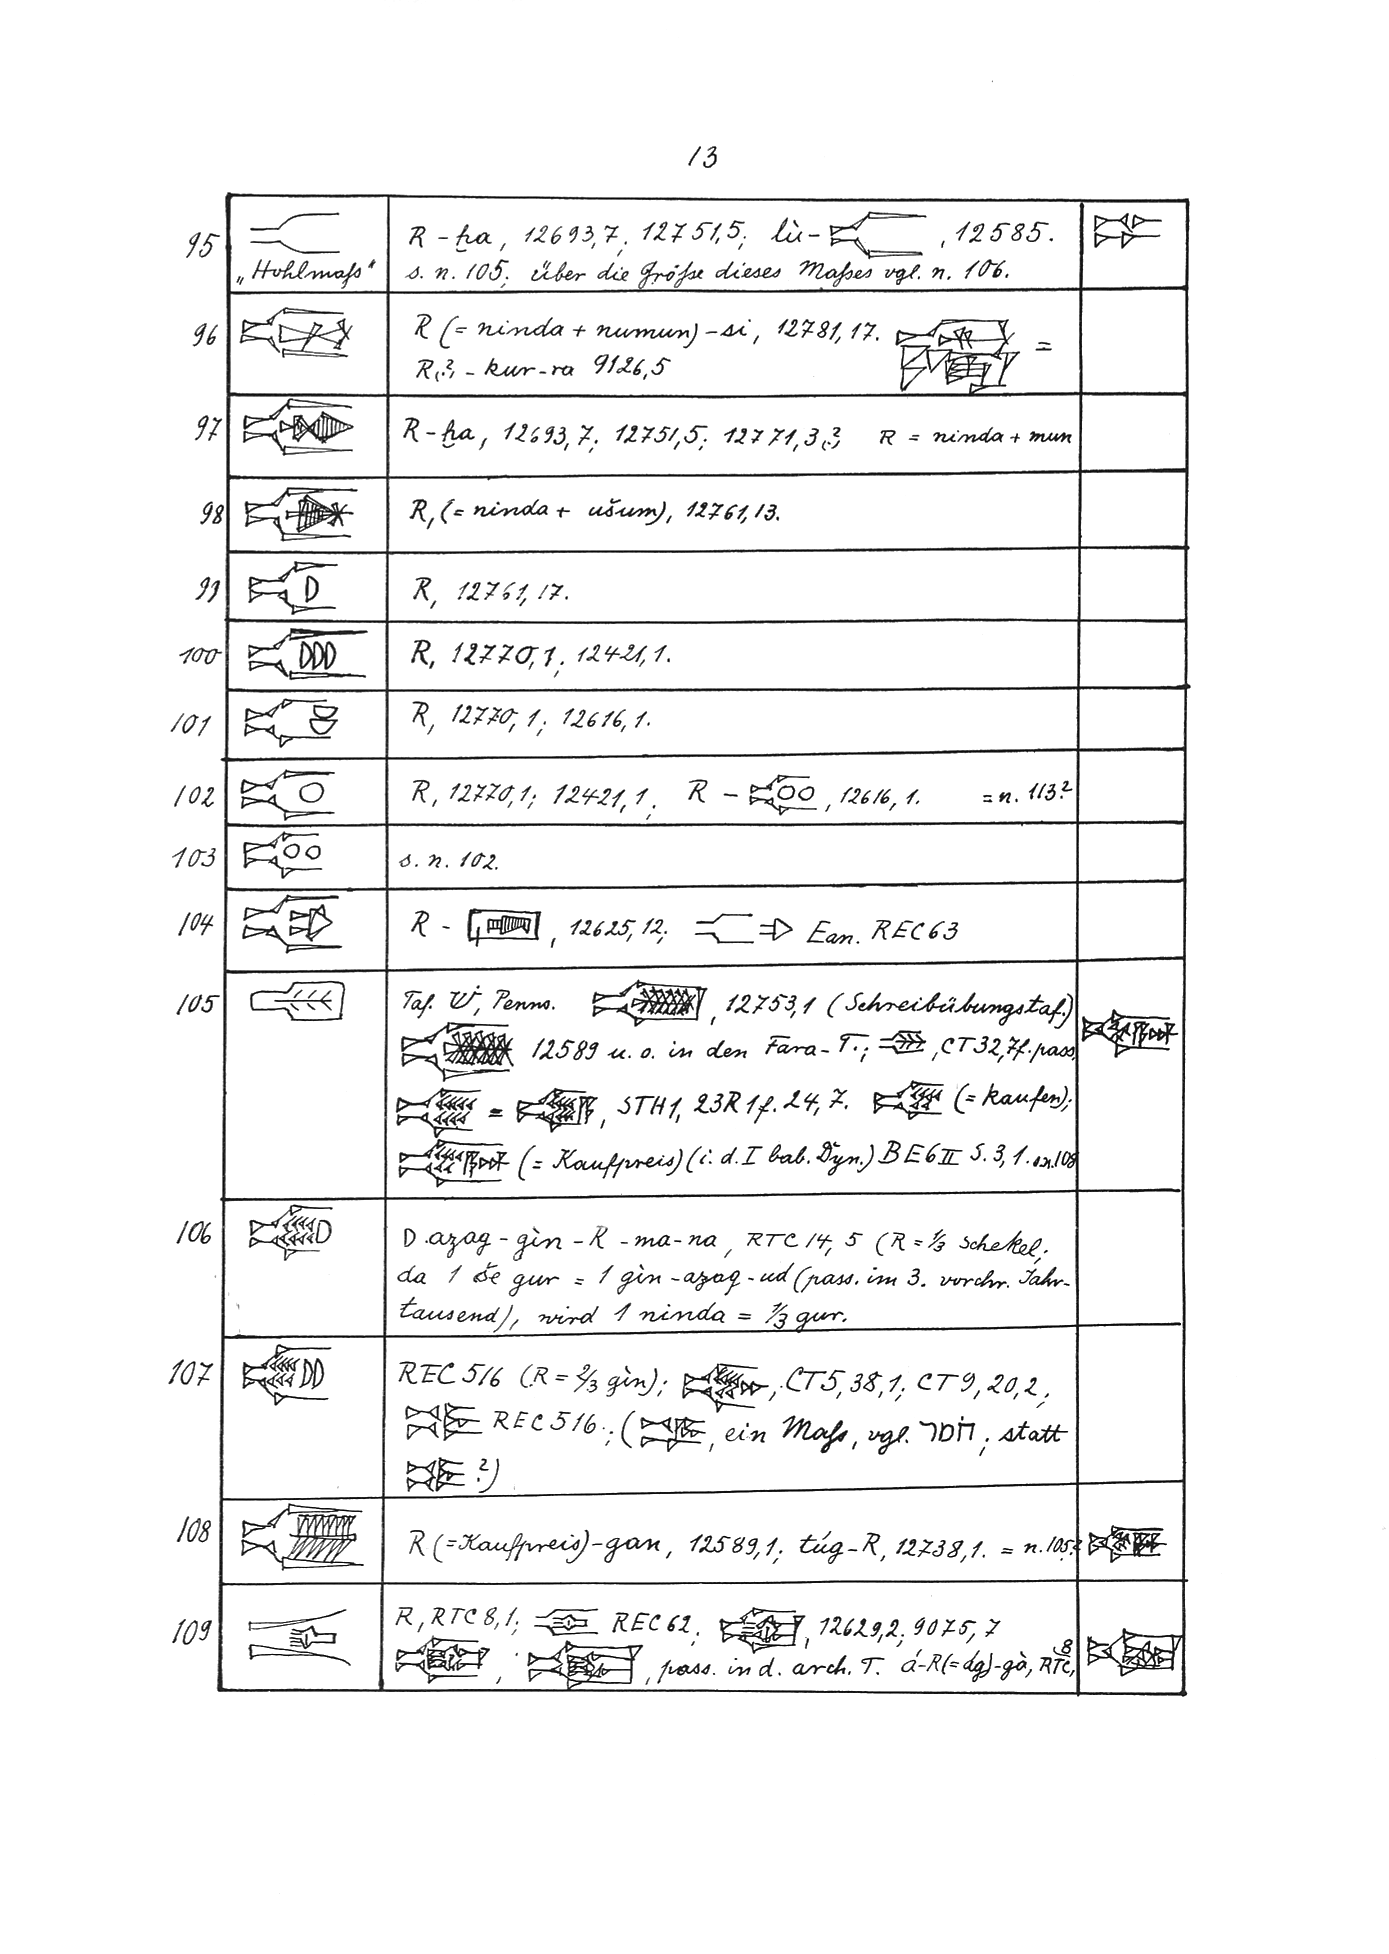 13
95 R-ḫa, 12693,7; 12751,5; lù- , 12585.
„Hohlmaß“ s. n. 105; über die Größe dieses Maßes vgl. n. 106.
96 R (= ninda + numun)-si, 12781,17. =
R(?) - kur-ra 9126,5
97 R-ḫa, 12693,7; 12751,5; 12771,3(?); R = ninda + mun
98 R, (= ninda + ušum), 12761,13.
99 R, 12761,17.
100 R, 12770,1; 12421,1.
101 R, 12770,1; 12616,1.
102 R, 12770,1; 12421,1; R - , 12616,1. = n. 113?
103 s. n. 102.
104 R - , 12625,12; Ean. REC 63
105 Taf. W, Penns. , 12753,1 (Schreibübungstaf.)
12589 u. o. in den Fara-T.; , CT 32,7f. pass
= , STH 1, 23 R 1 f. 24, 7. (= kaufen);
(= Kaufpreis) (i. d. I bab. Dyn.) BE 6 II S. 3,1. n. 108
106 D azag-gìn-R-ma-na, RTC 14, 5 (R = 1/3 Schekel;
da 1 še gur = 1 gìn-azag-ud (pass. im 3. vorchr. Jahr-
tausend), wird 1 ninda = 1/3 gur.
107 REC 516 (R = 2/3 gìn); , CT 5, 38, 1; CT 9, 20, 2;
REC 516.; ( , ein Maß, vgl. חֹמר; statt
?)
108 R (= Kaufpreis)-gan, 12589,1; túg-R, 12738,1. = n. 105?
109 R, RTC 8,1; REC 62; , 12629,2; 9075,7
, , pass. in d. arch. T. á-R(=dg)-gà, RTC, 8